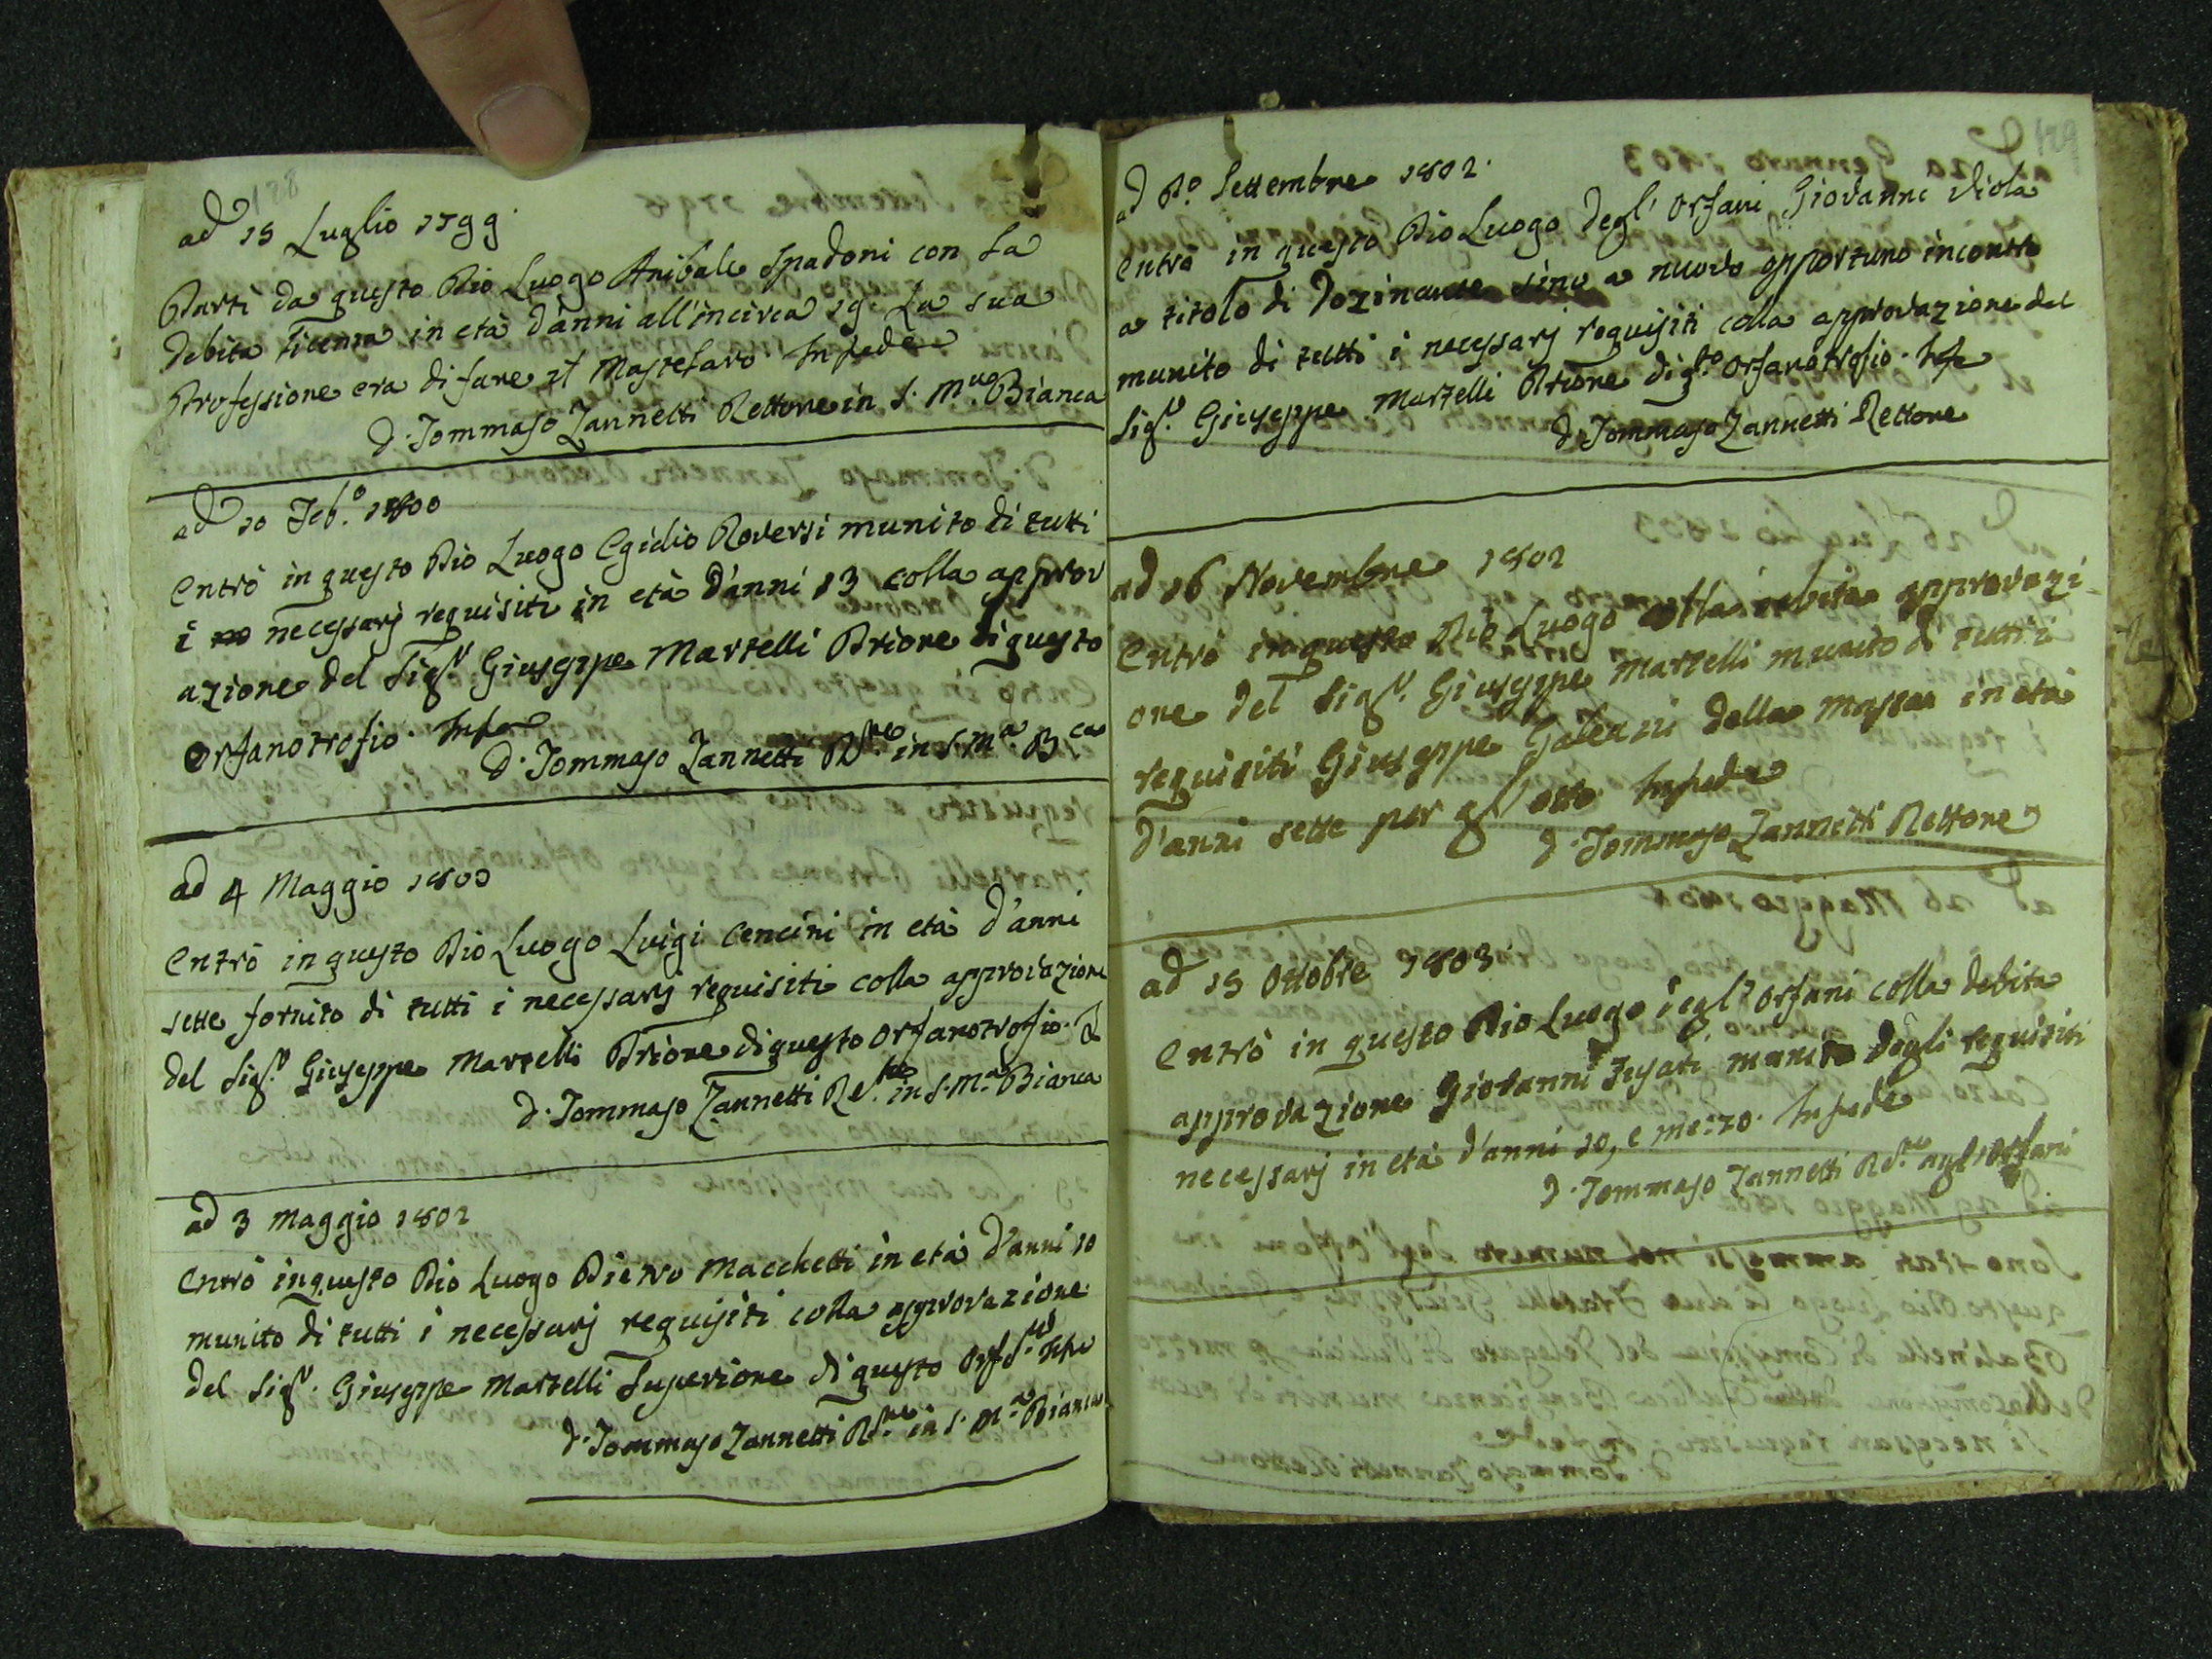 128
ad 15 Luglio 1799.
Partì da questo Pio Luogo Anibale Spadoni con la
debita licenza in età d'anni all'incirca 19. La sua
Professione era di fare il Mastelaro. In fede
D. Tommaso Zannetti Rettore in S. M.ª Bianca
ad 10 Feb.º 1800
Entrò in questo Pio Luogo Egidio Roversi munito di tutti
i necessarj requisiti in età d'anni 13 colla approv
azione del Sig.r Giuseppe Martelli Priore di questo
Orfanotrofio. In fe
D. Tommaso Zannetti R.re in S. M.ª B.ca
ad 4 Maggio 1800
Entrò in questo Pio Luogo Luigi Cencini in età d'anni
sette fornito di tutti i necessarj requisiti colla approvazione
del Sig.r Giuseppe Martelli Priore di questo Orfanotrofio.
D. Tommaso Zannetti Re.re in S. M.ª Bianca
ad 3 Maggio 1802
Entrò in questo Pio Luogo Pietro Macchetti in età d'anni 10
munito di tutti i necessarj requisiti colla approvazione
del Sig.r Giuseppe Martelli Superiore di questo Orf.º In fe
D. Tommaso Zannetti R.re in S. M.ª Bianca
129
ad P.º Settembre 1802.
Entrò in questo Pio Luogo degl' Orfani Giovanni Viola
a titolo di Dozinante sino a nuovo opportuno incontro
munito di tutti i necessarj requisiti colla approvazione del
Sig.r Giuseppe Martelli Priore di q.to Orfanotrofio. In fe
D. Tommaso Zannetti Rettore
ad 16 Novembre 1802
Entrò in questo Pio Luogo colla debita approvazi-
one del Sig.r Giuseppe Martelli munito di tutti i
requisiti Giuseppe Galeazzi della Massa in età
d'anni sette per gl' otto. In fede
D. Tommaso Zannetti Rettore
ad 15 Ottobre 1803.
Entrò in questo Pio Luogo degl' Orfani colla debita
approvazione Giovanni Fusati munito degli requisiti
necessarj in età d'anni 10, e mezzo. In fede
D. Tommaso Zannetti R.re agl' Orfani